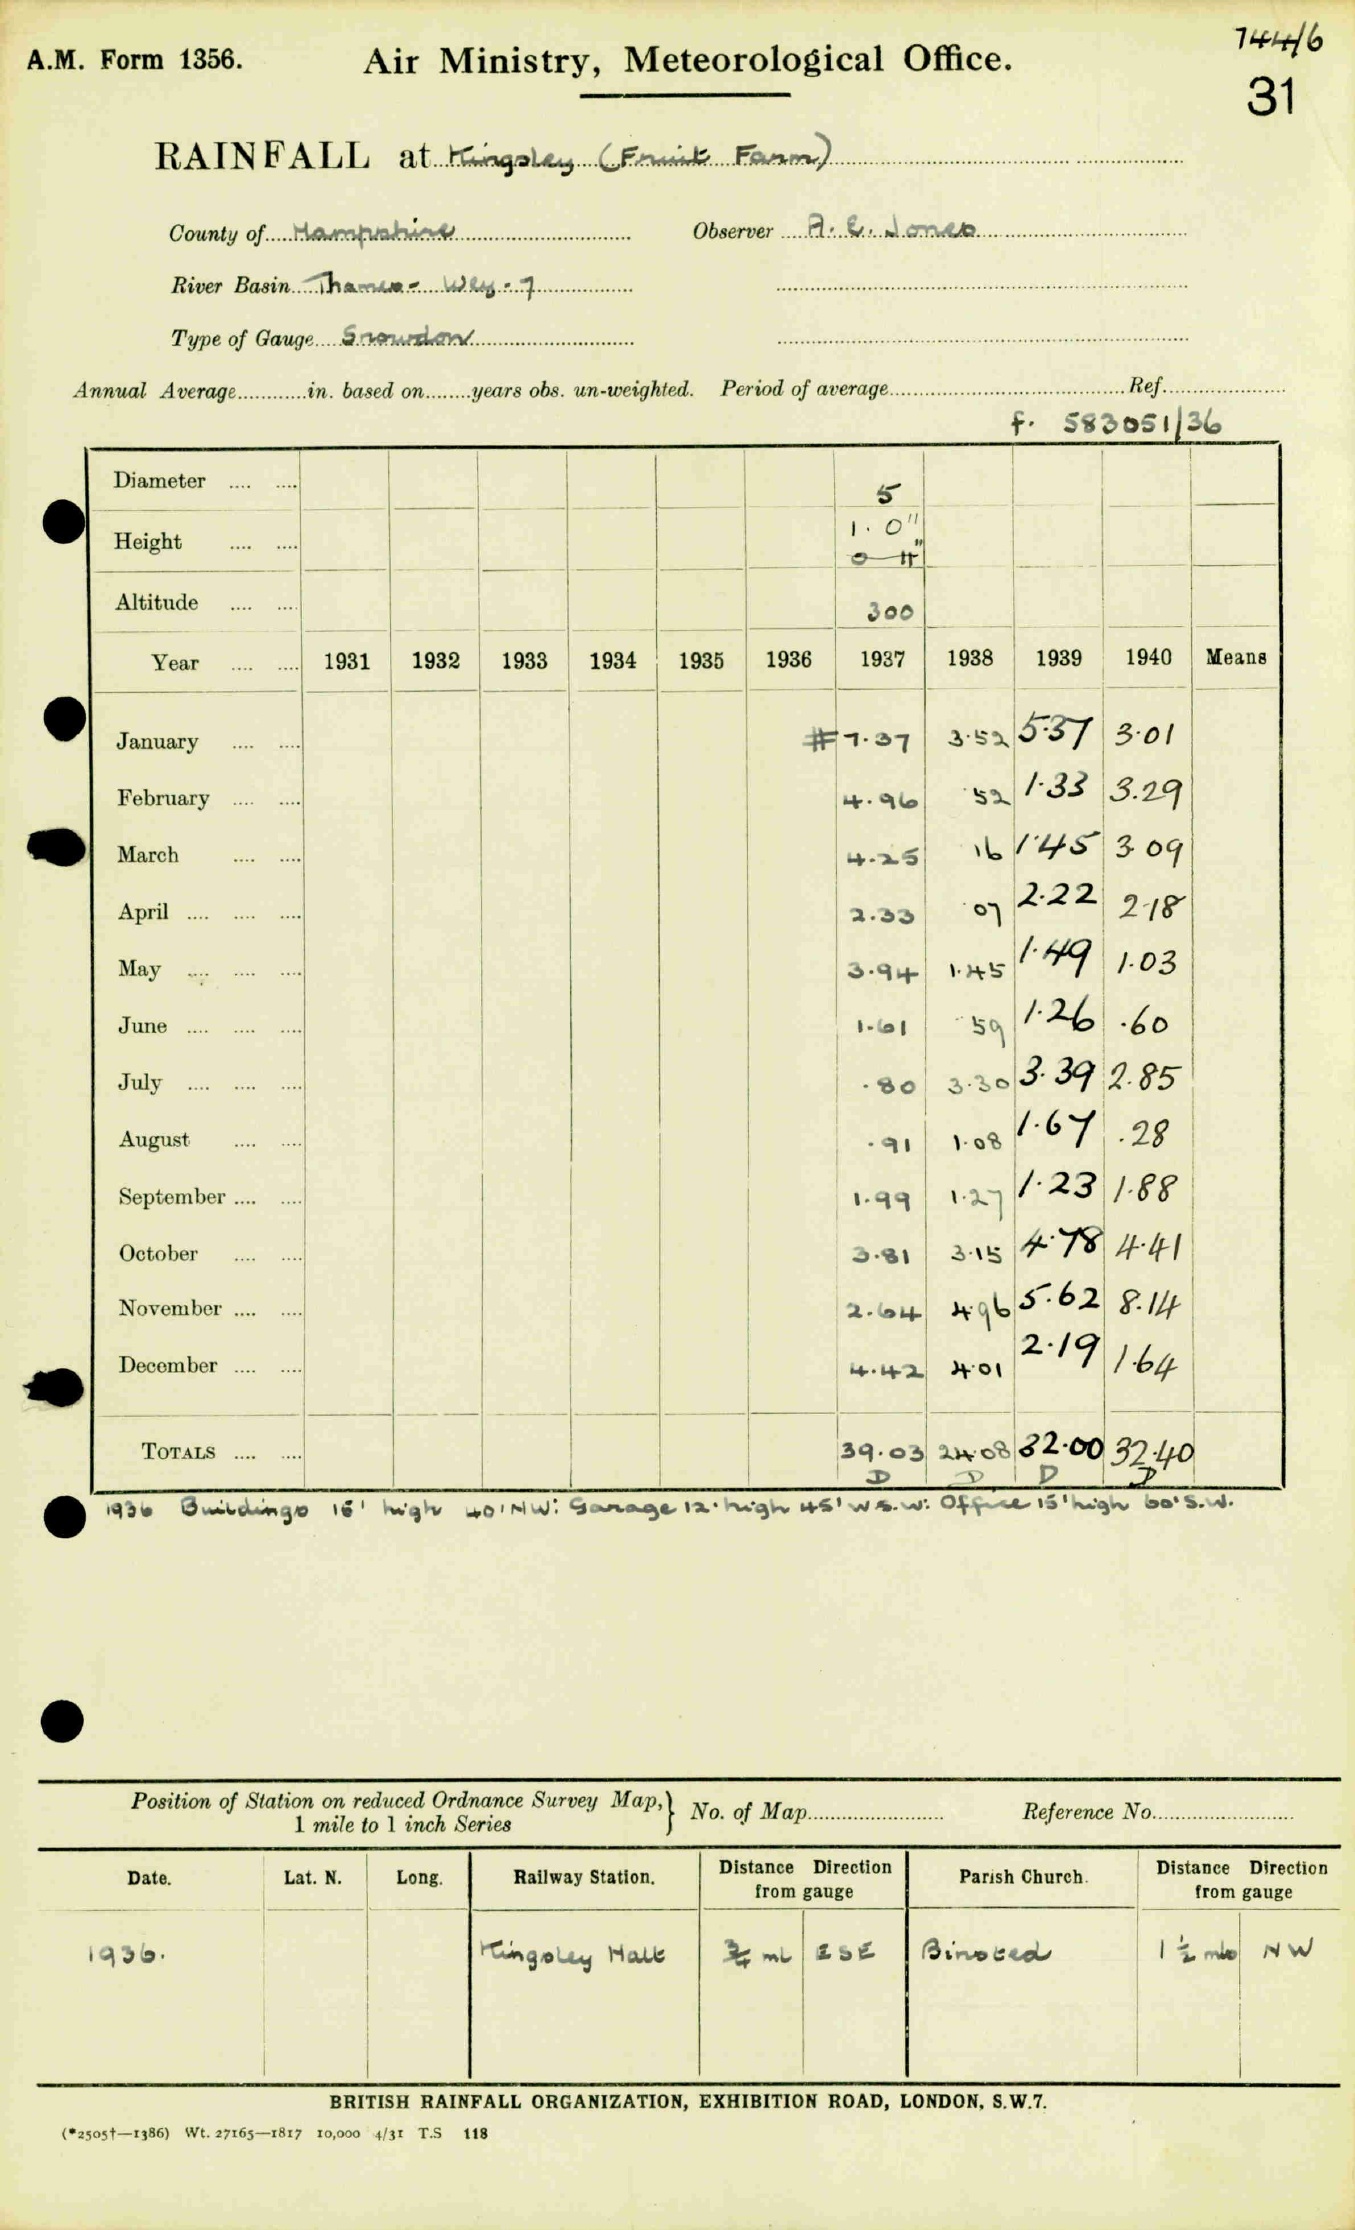 744/6
A.M. Form 1356. Air Ministry, Meteorological Office.
31
RAINFALL at Kingsley (Fruit Farm)
County of Hampshire Observer A. E. Jones
River Basin Thames - Wey - 7
Type of Gauge Snowdon
Annual Average............in. based on........years obs. un-weighted. Period of average.......... Ref..........
f. 583051/36
Diameter .... .... 5
Height .... .... 1. 0"
Altitude .... .... 300
Year .... .... 1931 1932 1933 1934 1935 1936 1937 1938 1939 1940 Means
January .... .... # 7.37 3.52 5.37 3.01
February .... .... 4.96 .52 1.33 3.29
March .... .... 4.25 .16 1.45 3.09
April .... .... .... 2.33 .07 2.22 2.18
May .... .... .... 3.94 1.45 1.49 1.03
June .... .... .... 1.61 .59 1.26 .60
July .... .... .... .80 3.30 3.39 2.85
August .... .... .91 1.08 1.67 .28
September .... .... 1.99 1.27 1.23 1.88
October .... .... 3.81 3.15 4.78 4.41
November .... .... 2.64 4.96 5.62 8.14
December .... .... 4.42 4.01 2.19 1.64
TOTALS .... .... 39.03 24.08 32.00 32.40
D D D D
1936 Buildings 15' high 40' NW: Garage 12' high 45' W.S.W: Office 15' high 60' S.W.
Position of Station on reduced Ordnance Survey Map, } No. of Map.......... Reference No..........
1 mile to 1 inch Series
Date. Lat. N. Long. Railway Station. Distance Direction from gauge Parish Church. Distance Direction from gauge
1936. Kingsley Halt 3/4 ml ESE Binsted 1 1/2 mls NW
BRITISH RAINFALL ORGANIZATION, EXHIBITION ROAD, LONDON, S.W.7.
(*2505†—1386) Wt. 27165—1817 10,000 4/31 T.S 118